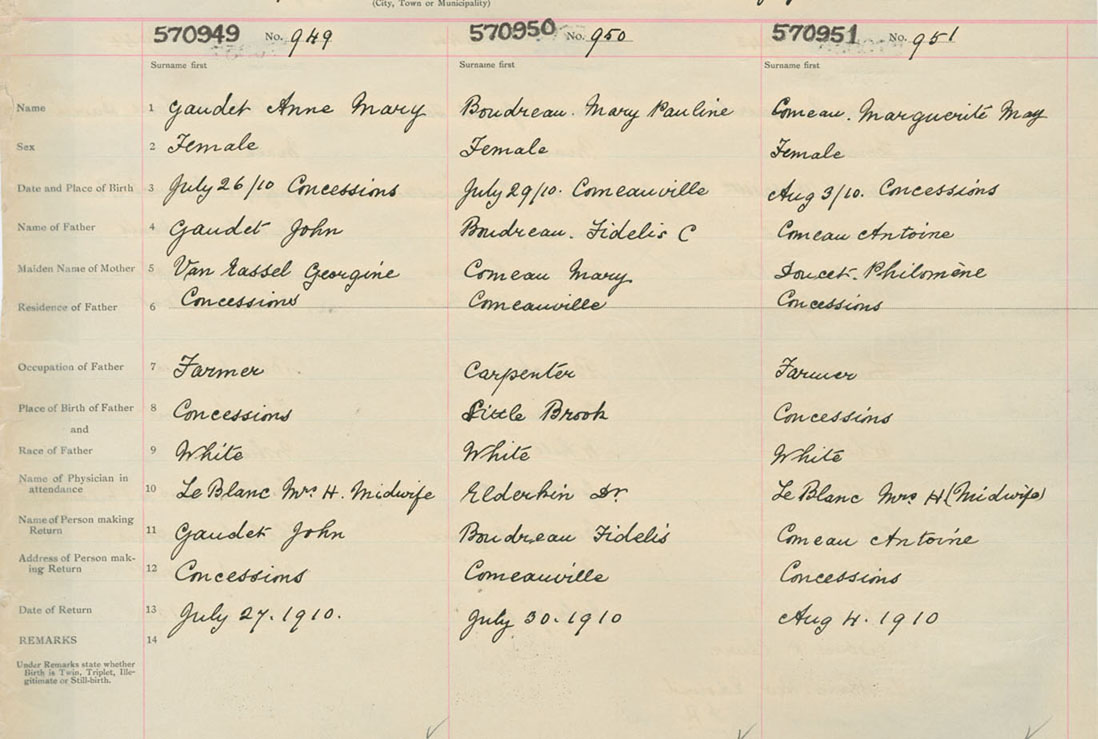 (City, Town or Municipality)
570949 No. 949 570950 No. 950 570951 No. 951
Surname first Surname first Surname first
Name 1 Gaudet Anne Mary Boudreau. Mary Pauline Comeau. Marguerite May
Sex 2 Female Female Female
Date and Place of Birth 3 July 26/10 Concessions July 29/10. Comeauville Aug 3/10. Concessions
Name of Father 4 Gaudet John Boudreau. Fidelis C Comeau Antoine
Maiden Name of Mother 5 Van Tassel Georgine Comeau Mary Doucet. Philomène
Residence of Father 6 Concessions Comeauville Concessions
Occupation of Father 7 Farmer Carpenter Farmer
Place of Birth of Father 8 Concessions Little Brook Concessions
and
Race of Father 9 White White White
Name of Physician in
attendance 10 Le Blanc Mrs H. Midwife Elderkin Dr Le Blanc Mrs H (Midwife)
Name of Person making
Return 11 Gaudet John Boudreau Fidelis Comeau Antoine
Address of Person mak-
ing Return 12 Concessions Comeauville Concessions
Date of Return 13 July 27. 1910. July 30. 1910 Aug 4. 1910
REMARKS 14
Under Remarks state whether
Birth is Twin, Triplet, Ille-
gitimate or Still-birth.